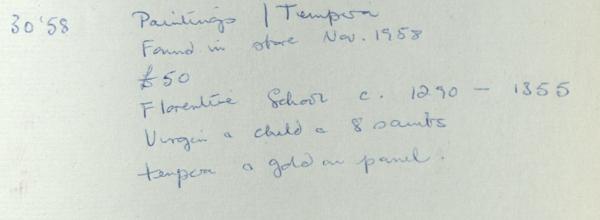 30'58 Paintings / Tempera
Found in store Nov. 1958
£50
Florentine School c. 1290 - 1355
Virgin & child & 8 saints
tempera & gold on panel.